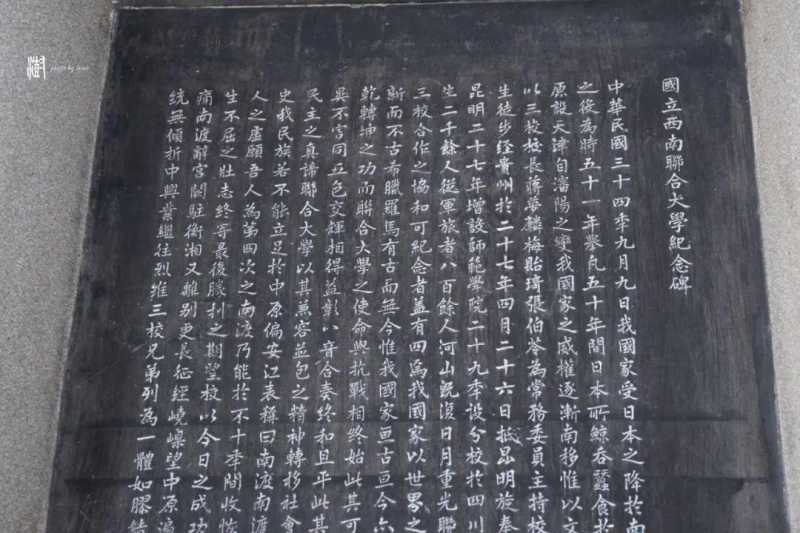 國立西南聯合大學紀念碑
中華民國三十四年九月九日我國家受日本之降於南
之役為時五十一年舉凡五十年間日本所鯨吞蠶食於
原設天津自瀋陽之變我國家之威權逐漸南移惟以文
以三校校長蔣夢麟梅貽琦張伯苓為常務委員主持校
生徒步經貴州於二十七年四月二十六日抵昆明旋奉
昆明二十七年增設師範學院二十九年設分校於四川
生二千餘人從軍旅者八百餘人河山既復日月重光聯
三校合作之協和可紀念者蓋有四焉我國家以世界之
新而不古希臘羅馬有古而無今惟我國家亘古亘今亦
乾轉坤之功而聯合大學之使命與抗戰相終始此其可
異不害同五色交輝相得益彰八音合奏終和且平此其
民主之真諦聯合大學以其兼容並包之精神轉移社會
史我民族若不能立足於中原偏安江表稱曰南渡南渡
人之虛願吾人為第四次之南渡乃能於不十年間收恢
生不屈之壯志終寄最後勝利之期望校以今日之成功
痛南渡辭宮闕駐衡湘又離別更長征經嶢嶮望中原遍
統無傾折中興業繼往烈維三校兄弟列為一體如膠結
photo by